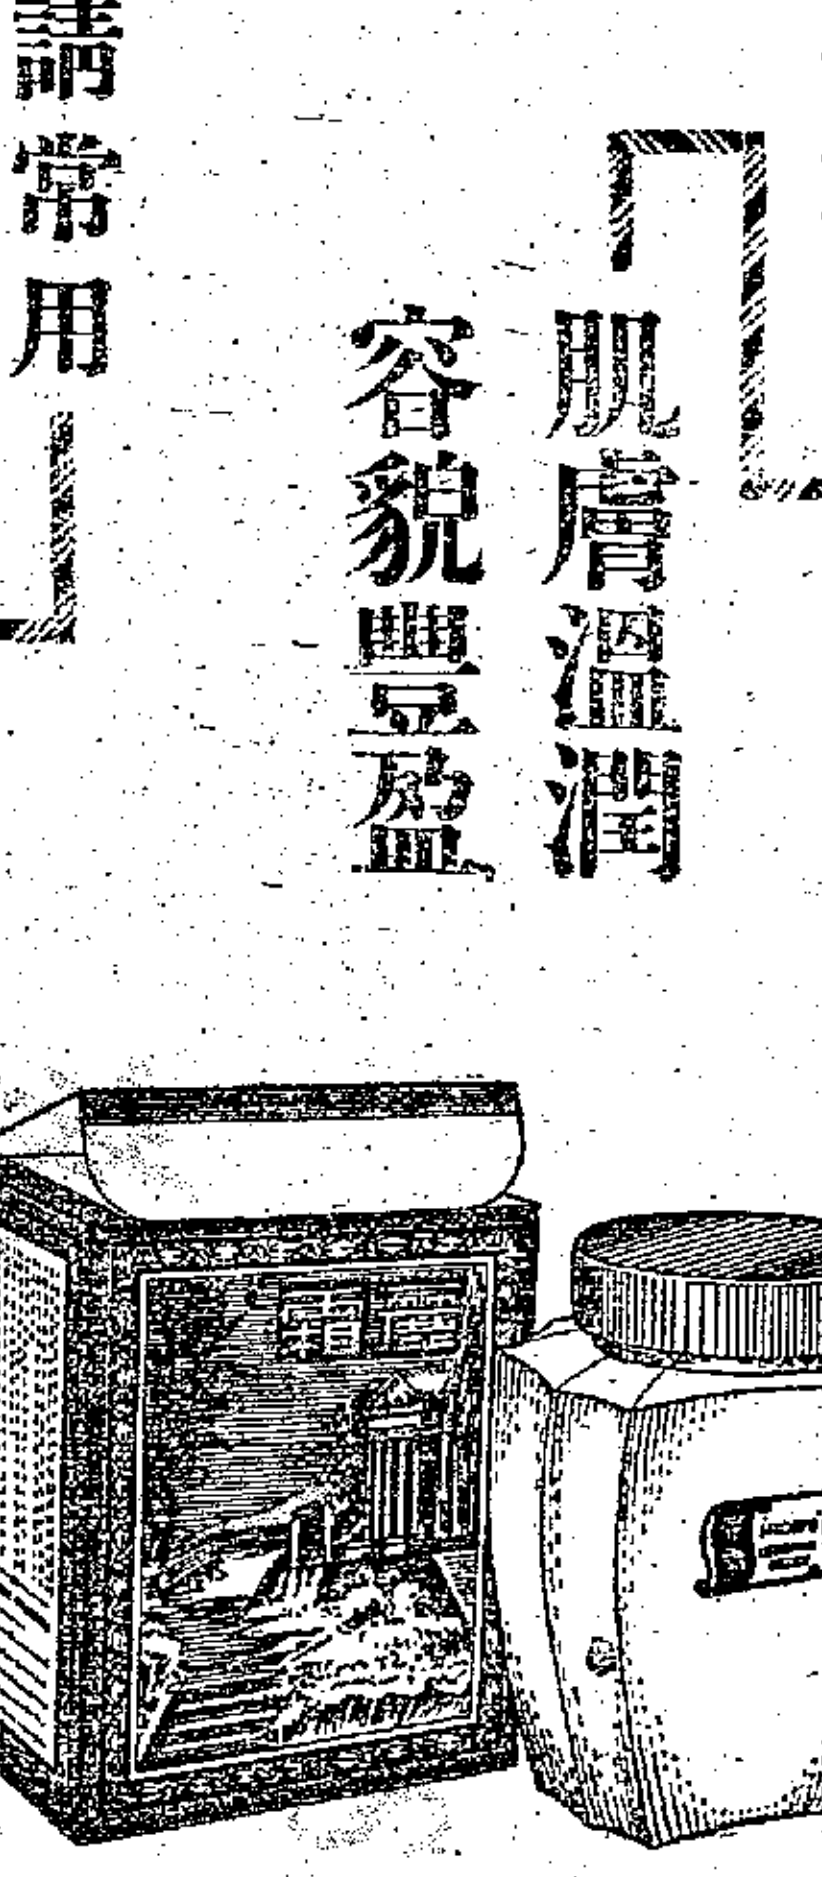 肌膚溫潤
容貌豐盈
請常用
霜